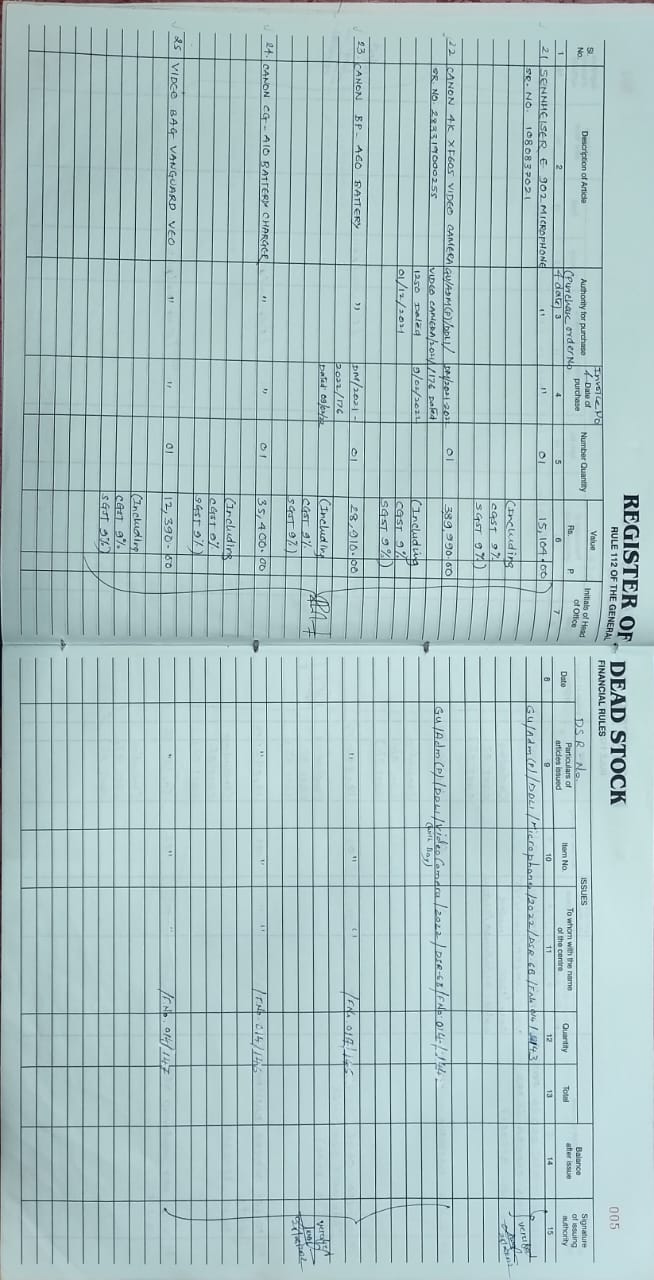 REGISTER OF DEAD STOCK
RULE 112 OF THE GENERAL FINANCIAL RULES
005
Sl. No.
Description of Article
Authority for purchase
(Purchase order No & date)
Invoice No & Date of purchase
Number Quantity
Value
Rs. P
Initials of Head of Office
DSR-No.
ISSUES
Date
Particulars of articles issued
Item No.
To whom with the name of the centre
Quantity
Total
Balance after issue
Signature of issuing authority
1 2 3 4 5 6 7 8 9 10 11 12 13 14 15
21 SENNHEISER E 902 MICROPHONE " " 01 15,104.00 GU/Adm(P)/DDLI/Microphone/2022/DSR-6B/F.No.014/143
SR. NO. 1080837021
(Including
CGST 9%
SGST 9%)
verified
22 CANON 4K XF605 VIDEO CAMERA GU/ADM(P)/DDLI/ DM/2021-2022 01 389,990.00 GU/Adm(P)/DDLI/Video Camera/2022/DSR-6B/F.No.014/144
SR NO 283319000255 VIDEO CAMERA/2021/ /176 Dated (with Bag)
1250 Dated 9/02/2022 (Including
01/12/2021 CGST 9%
SGST 9%)
23 CANON BP-A60 BATTERY " DM/2021- 01 28,910.00 " " " /F.No. 014/145
2022/176
Dated 09/02/22 (Including
CGST 9%
SGST 9%)
verified
24. CANON CG-A10 BATTERY CHARGER " " 01 35,400.00 " " " /F.No. 014/146
(Including
CGST 9%
SGST 9%)
25 VIDEO BAG VANGUARD VEO " " 01 12,390.00 " " " /F.No. 014/147
(Including
CGST 9%
SGST 9%)